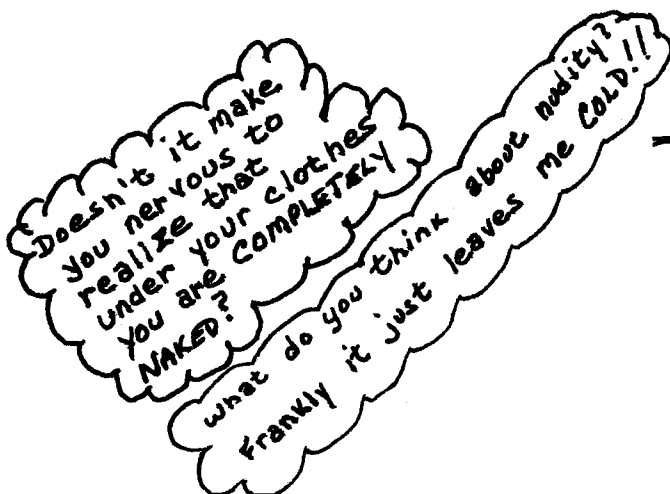 Doesn't it make
you nervous to
realize that
under your clothes
you are COMPLETELY
NAKED?
what do you think about nudity?
Frankly it just leaves me COLD!!